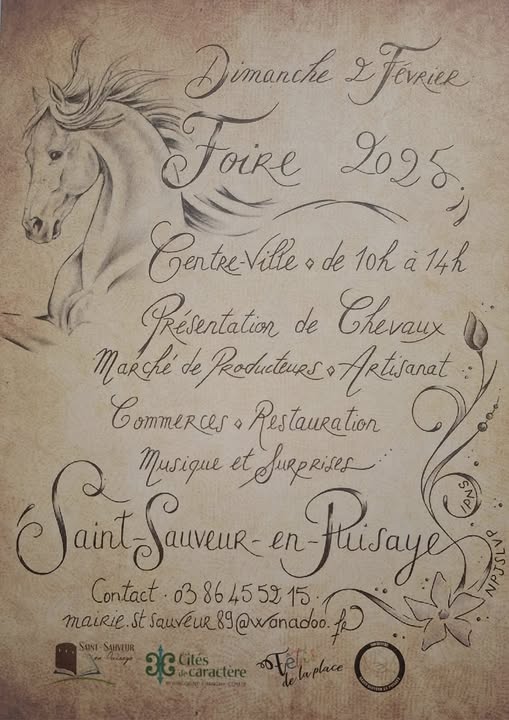 Dimanche 2 Février
Foire 2025
Centre-Ville ⋄ de 10h à 14h
Présentation de Chevaux
Marché de Producteurs ⋄ Artisanat
Commerces ⋄ Restauration
Musique et Surprises
Saint-Sauveur-en-Puisaye
Contact · 03 86 45 52 15 ·
mairie.st sauveur89@wanadoo.fr
NPJSLVP
Saint-Sauveur
en Puisaye
Cités
de caractère
BOURGOGNE-FRANCHE-COMTÉ
Fête
de la place